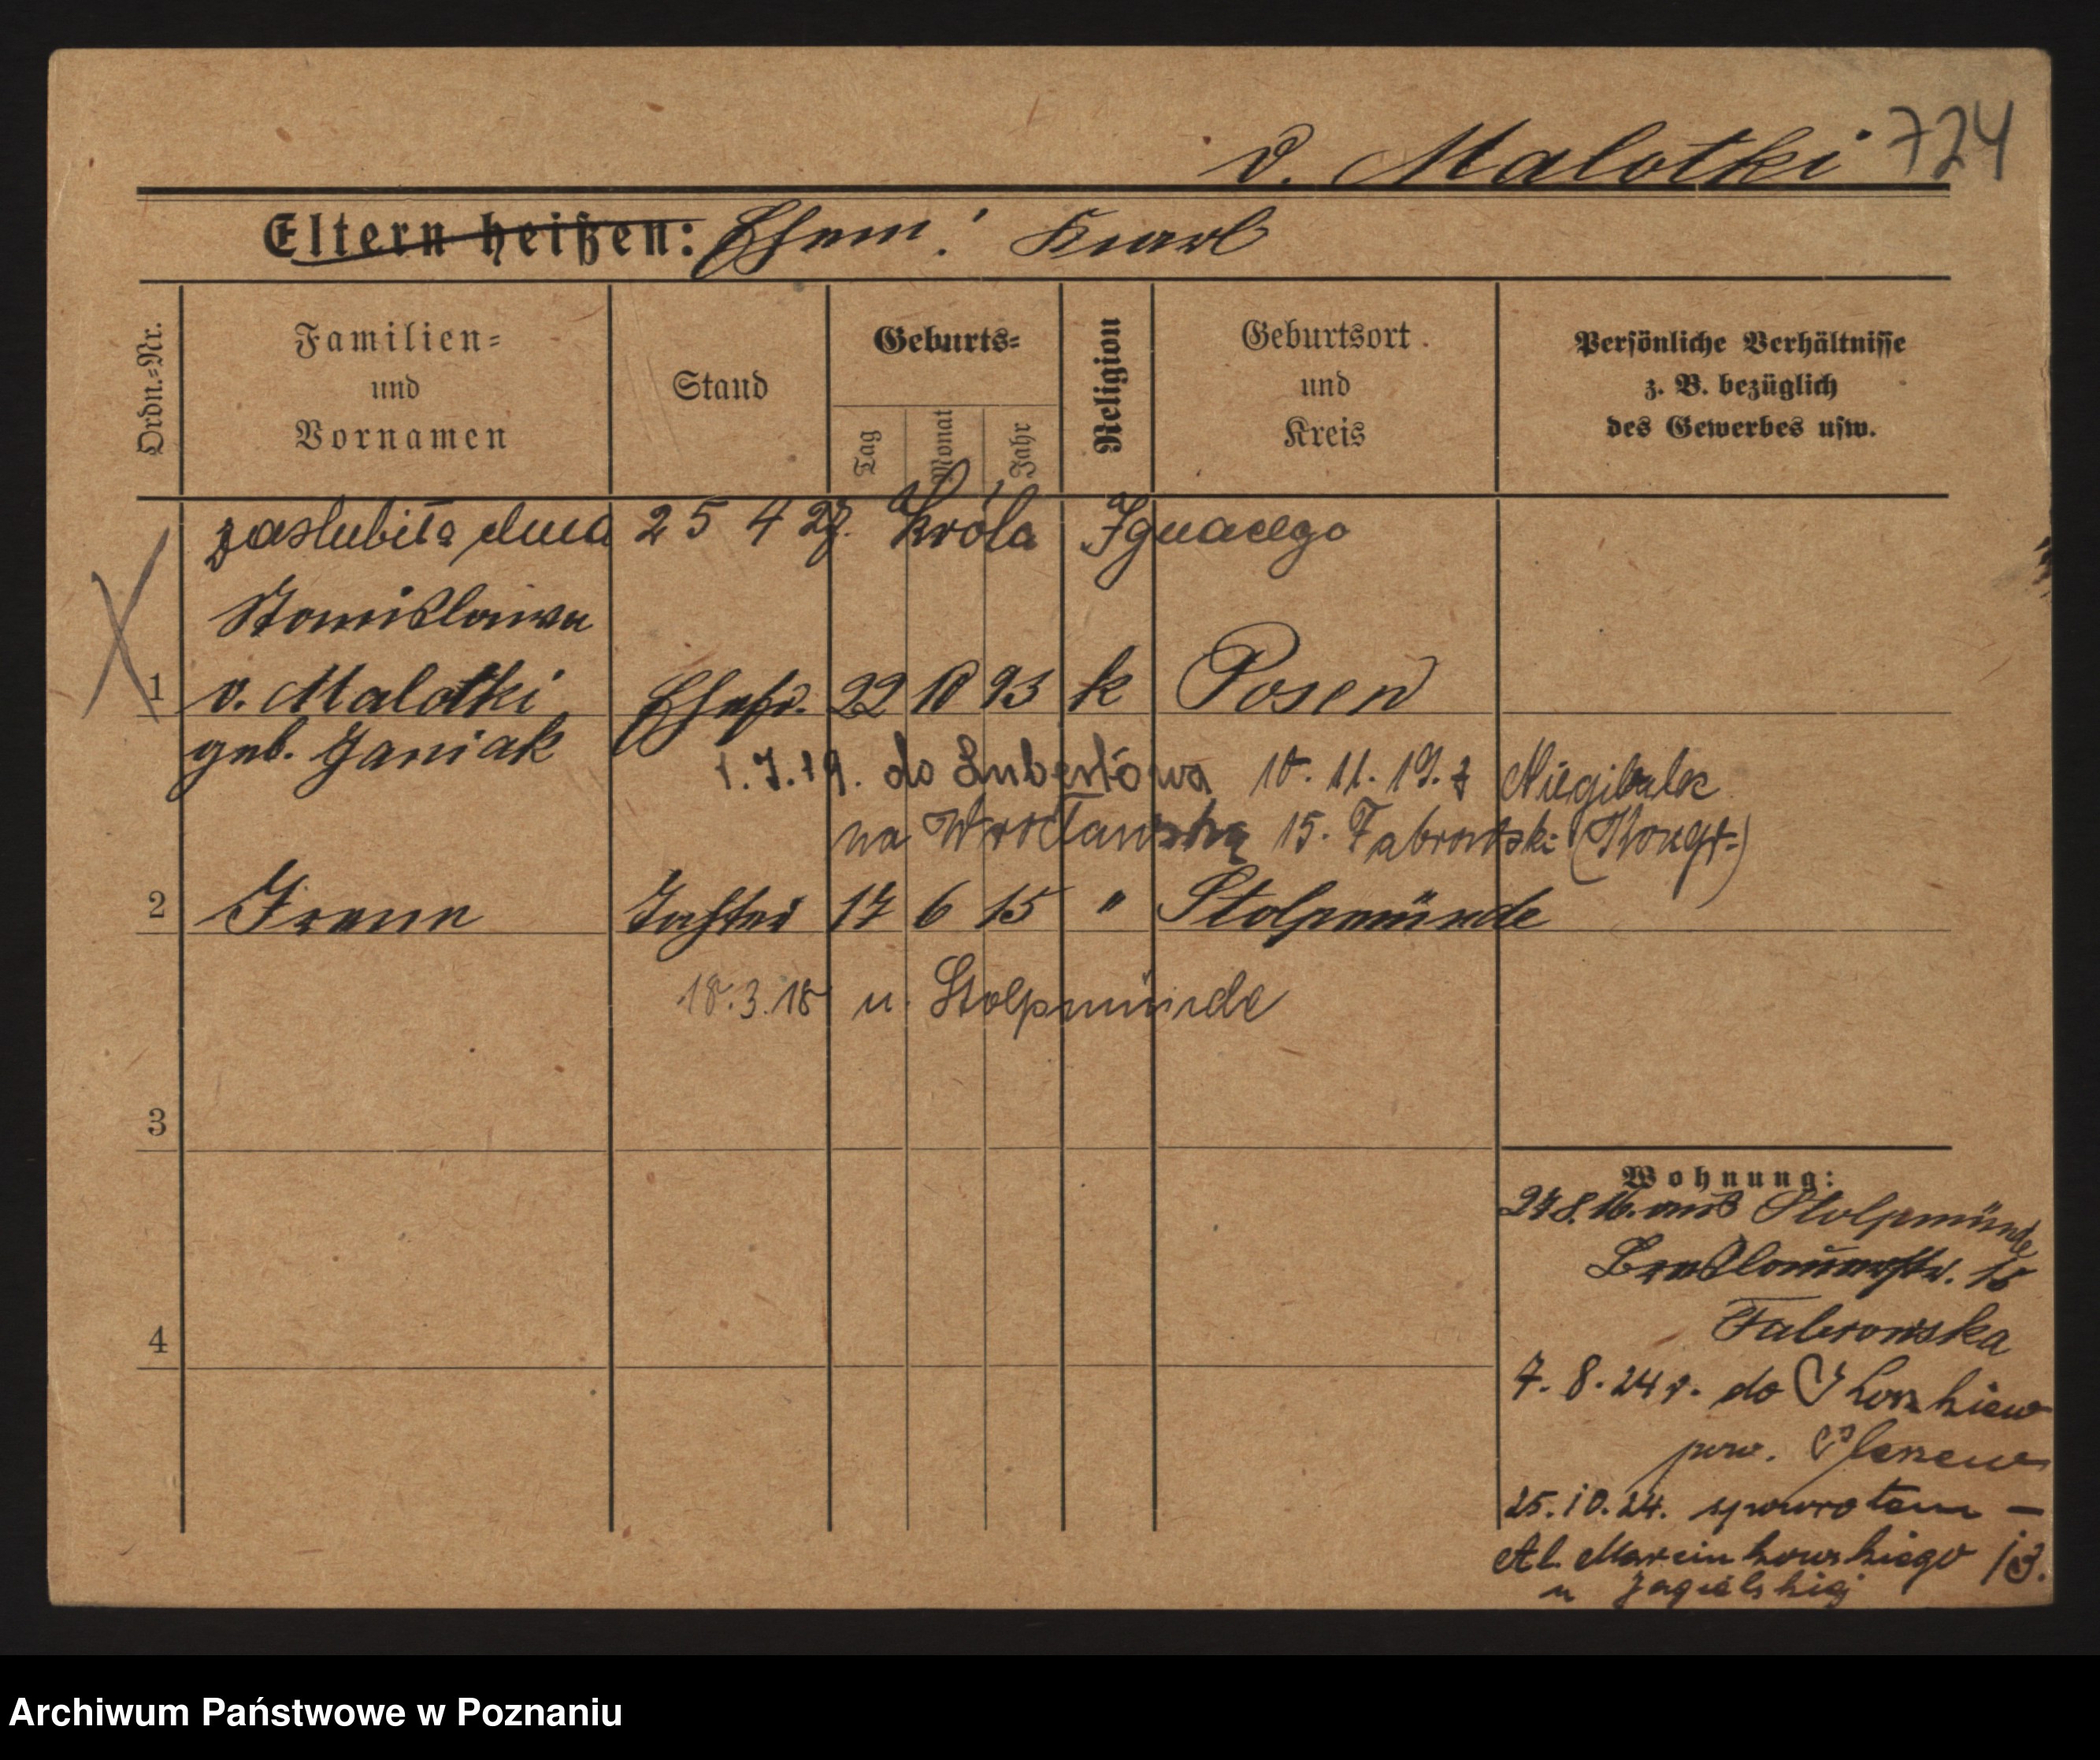 v. Malotki 724
Eltern heißen: Ehem: Karl
Ordn.=Nr.
Familien=
und
Vornamen
Stand
Geburts=
Tag
Monat
Jahr
Religion
Geburtsort
und
Kreis
Persönliche Verhältnisse
z. B. bezüglich
des Gewerbes usw.
zaslubiła dnia 25 4 27. Króla Ignacego
Stanislawa
1 v. Malotki Ehefr. 22 10 93 k Posen
geb. Janiak
1.7.19. do Lubertówa 10.11.19. z
na Wrocławską 15. Fabrowski
2 Irene Tochter 17 6 15 " Stolpmünde
18.3.18 n. Stolpmünde
3
4
Wohnung:
27.8.16. aus Stolpmünde
Breslauerstr. 15
Fabrowska
7.8.24 r. do
pow. Pleszew
25.10.24. spowrotem —
Al. Marcinkowskiego 13.
u Jagielskiej
Archiwum Państwowe w Poznaniu